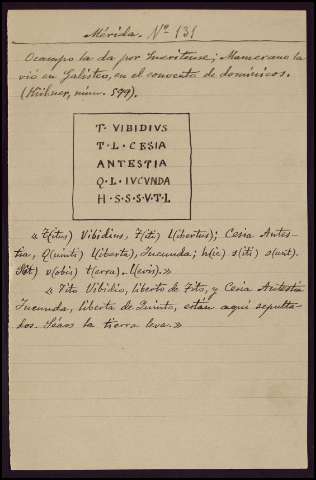 Mérida. Nº 131
Ocampo la da por Emeritense; Mamerano la
vió en Galisteo, en el convento de dominicos.
(Hübner, núm. 599).
T· VIBIDIVS
T·L·CESIA
ANTESTIA
Q·L·IVCVNDA
H·S·S·S·V·T·L
« T(itus) Vibidius, T(iti) l(ibertus); Cesia Antes-
tia, Q(uinti) l(iberta), Jucunda; h(ic) s(iti) s(unt).
S(it) v(obis) t(erra) l(evis).»
« Tito Vibidio, liberto de Tito, y Cesia Antestia
Jucunda, liberta de Quinto, están aquí sepulta-
dos. Séaos la tierra leve.»